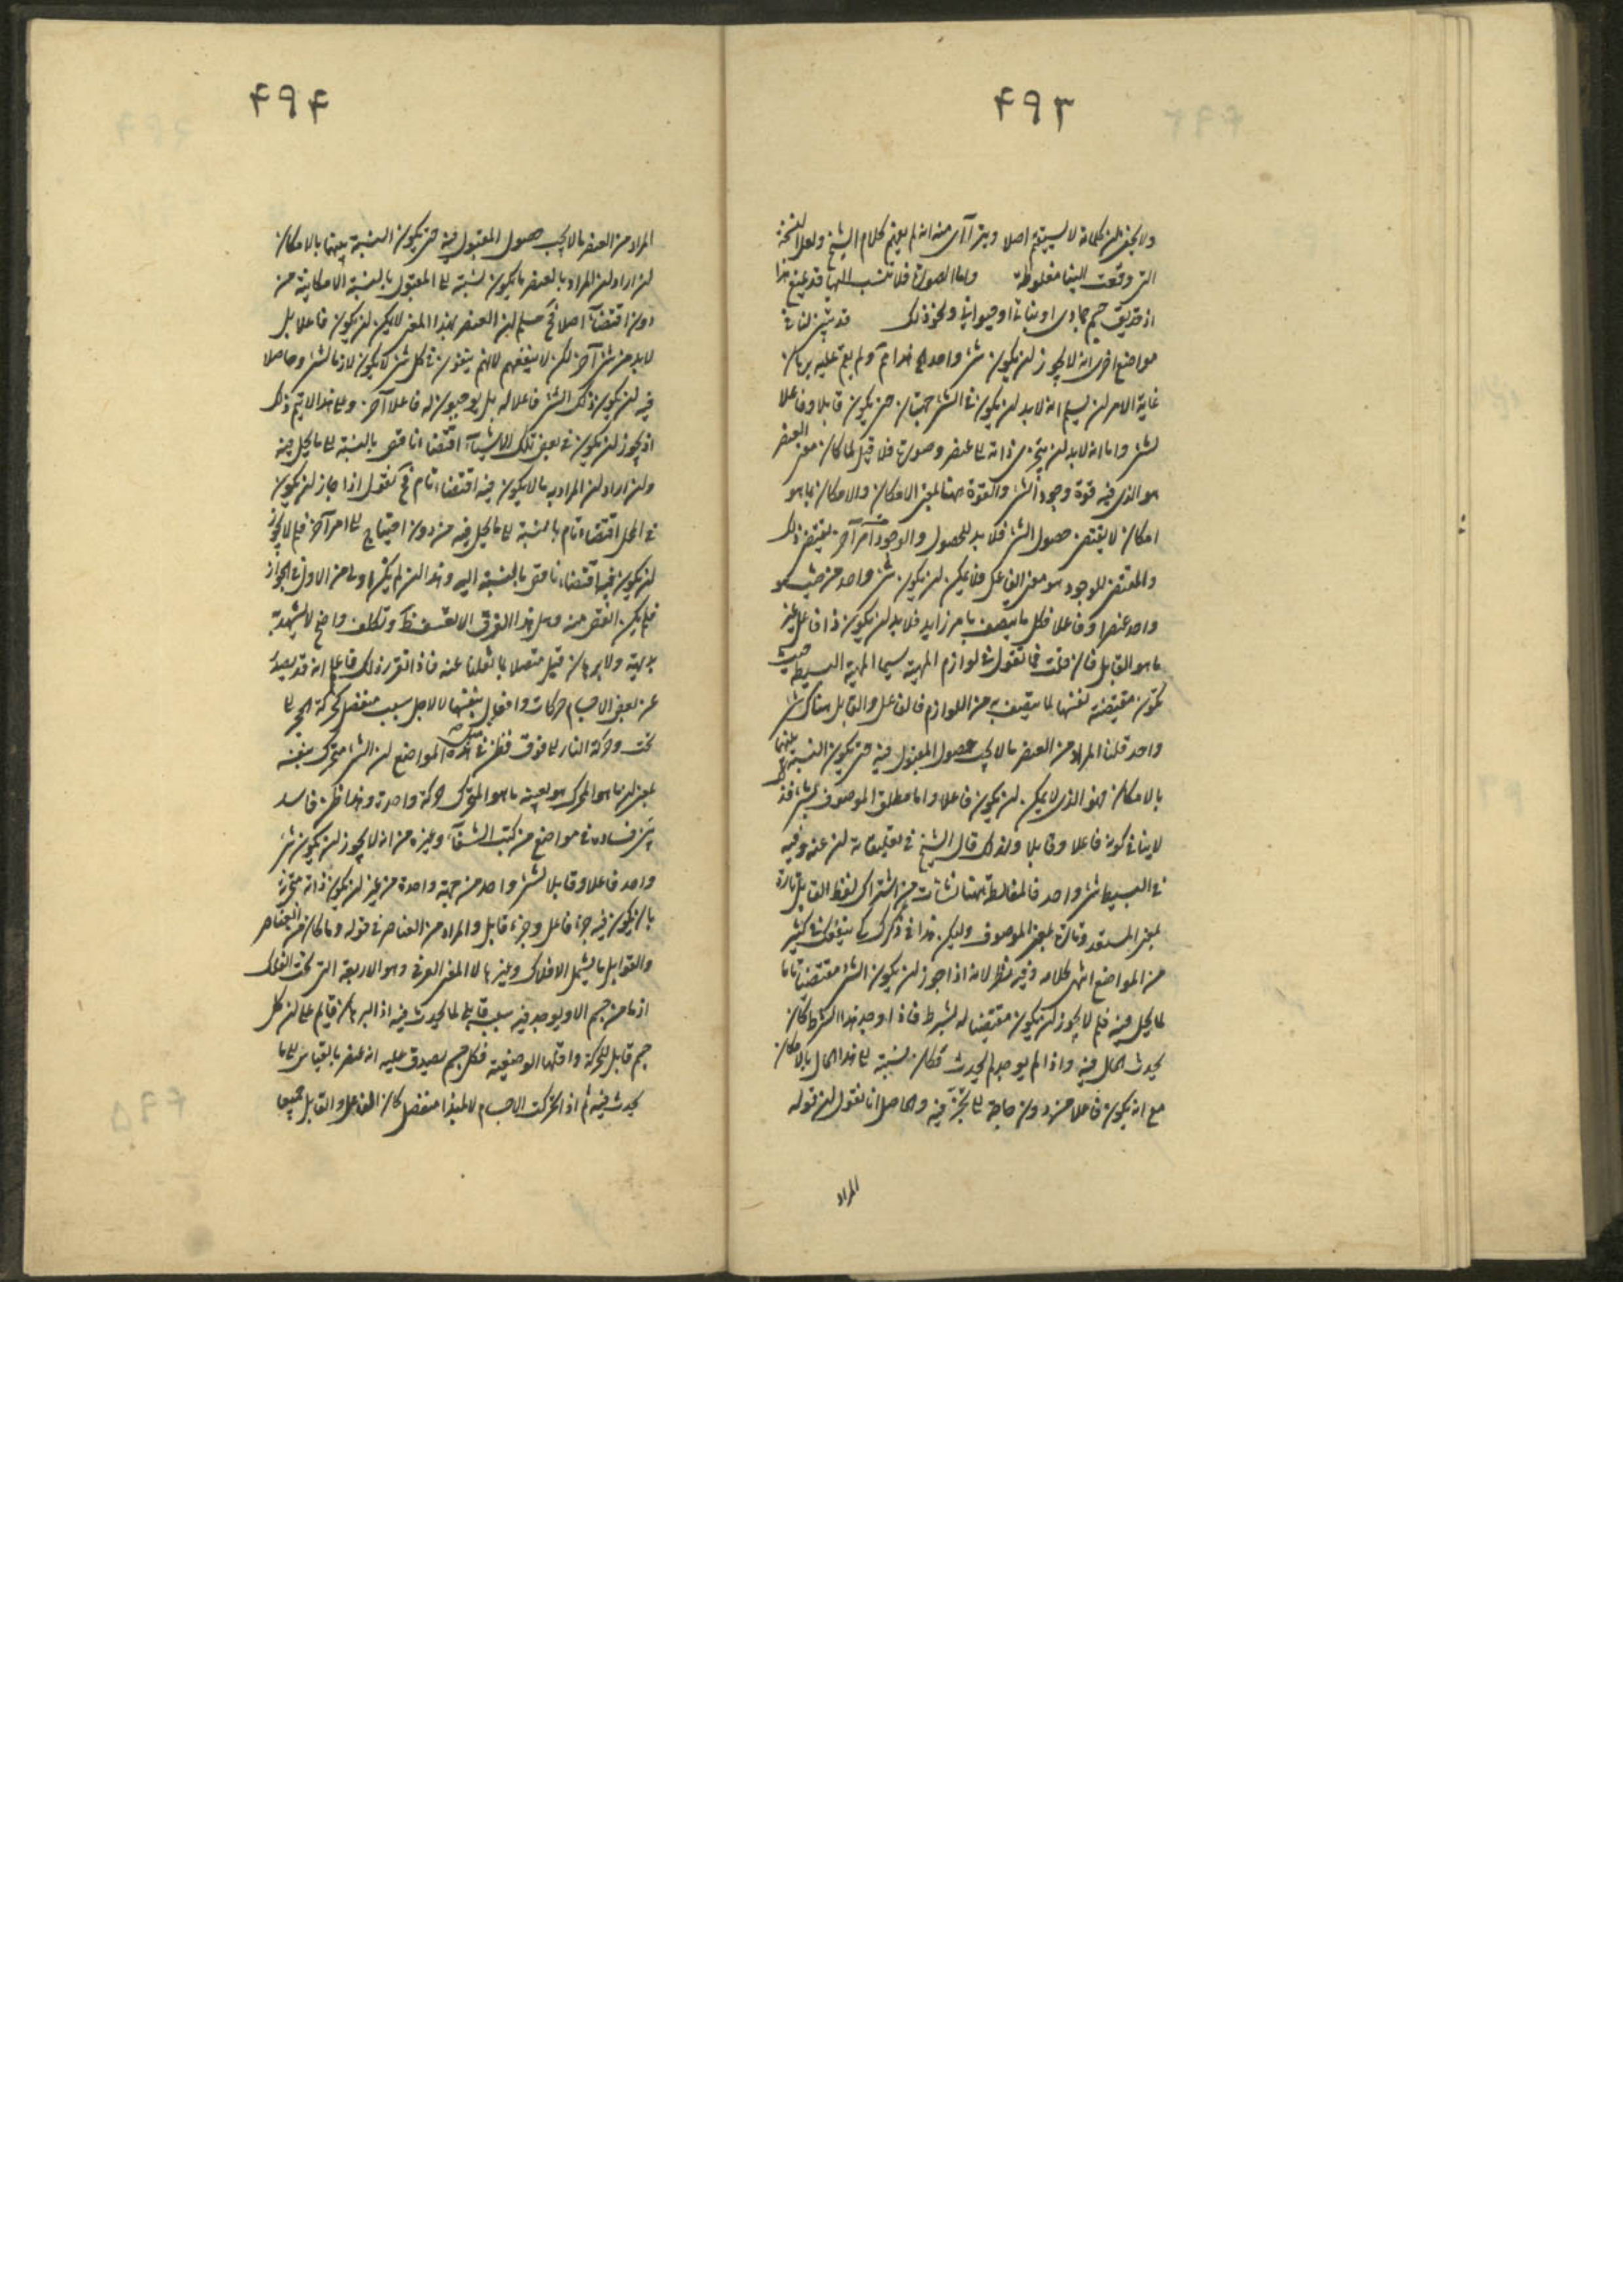 ۴۹۳
ولا يخفى ان كلامه لا يستقيم اصلا ويترآاى منه انه لم يفهم كلام الشيخ ولعل النسخة
التى وقعت الينا مغلوطة واما الصورة فلا تنسب اليها قد يمنع هذا
اذ قد يق جسم جمادى او نباتى او حيوانى ونحو ذلك قد بين لنا فى
مواضع اخرى انه لا يجوز ان يكون شئ واحد هذا لم ولم يقم عليه برهان
غاية الامر ان يسلم انه لابد ان يكون فى الشئ جهتان حتى يكون قابلا وفاعلا
لشئ واما انه لابد ان يتجزى ذاته الى عنصر وصورة فلا قيل لما كان معنى العنصر
هو الذى فيه قوة وجود الشئ والقوة ههنا بمعنى الامكان والامكان بما هو
امكان لا يقتضى حصول الشئ فلابد للحصول والوجود من امر آخر يقتضى ذلك
والمقتضى للوجود هو معنى الفاعل فلا يمكن ان يكون شئ واحد من حيث هو
واحد عنصرا وفاعلا فكل ما يتصف بامر زايد فلابد ان يكون ذا فاعل غير
ما هو القابل فان قلت فما تقول فى لوازم المهية سيما المهية البسيطة حيث
تكون مقتضية لنفسها لما يتصف به من اللوازم فالفاعل والقابل هناك شئ
واحد قلنا المراد من العنصر ما لا يجب حصول المقبول فيه حتى يكون النسبة بينهما
بالامكان فهو الذى لا يمكن ان يكون فاعلا واما مطلق الموصوف بشئ فذ
لا ينافى كونه فاعلا وقابلا ولذلك قال الشيخ فى تعليقاته ان عنه وفيه
فى البسيط شئ واحد فالمغالطة ههنا نشأت من اشتراك لفظ القابل تارة
بمعنى المستعد وتارة بمعنى الموصوف وليكن هذا فى ذكرك كى ينفعك فى كثير
من المواضع انتهى كلامه وفيه نظر لانه اذا جوز ان يكون الشئ مقتضيا تاما
لما يحل فيه فلم لا يجوز ان يكون مقتضيا له بشرط فاذا وجد هذا الشرط كان
يحدث الحال فيه واذا لم يوجد لم يحدث فكان نسبته الى هذا الحال بالامكان
مع انه يكون فاعلا من دون حاجة الى تجزء فيه والحاصل انا نقول ان قوله
المراد
۴۹۴
المراد من العنصر ما لا يجب حصول المقبول فيه حتى يكون النسبة بينهما بالامكان
ان اراد ان المراد بالعنصر ما يكون نسبته الى المقبول بالنسبة الامكانية من
دون اقتضاء اصلا فح مسلم ان العنصر بهذا المعنى لا يمكن ان يكون فاعلا بل
لابد من شئ آخر لكن لا ينفعهم لانهم ينفون فى كل شئ لا يكون لازما لشئ وحاصلا
فيه ان يكون ذلك الشئ فاعلا له بل يوجبون له فاعلا آخر وعلى هذا لا يتم ذلك
اذ يجوز ان يكون فى بعض تلك الاشياء اقتضاء ناقص بالنسبة الى ما يحل فيه
وان اراد ان المراد به ما لا يكون فيه اقتضاء تام فح نقول اذا جاز ان يكون
فى المحل اقتضاء تام بالنسبة الى ما يحل فيه من دون احتياج الى امر آخر فلم لا يجوز
ان يكون فيه اقتضاء ناقص بالنسبة اليه وهذا ان لم يكن اولى من الاول فى الجواز
فلم يكن انقص منه وهل هذا الفرق الا تعسف وتكلف واضح لا يشهد به
بديهة ولا برهان قيل متصلا بما نقلنا عنه فاذا تقرر ذلك فاعلم انه قد يصدر
عن بعض الاجسام حركات وافعال بنفسها لا لاجل سبب منفصل كحركة الحجر الى
تحت وحركة النار الى فوق فظن فى هذه المواضع ان الشئ متحرك بنفسه
بمعنى ان ما هو المحرك هو بعينه ما هو المتحرك حركة واحدة وهذا ظن فاسد
بين فساده فى مواضع من كتب الشفاء وغيره من انه لا يجوز ان يكون شئ
واحد فاعلا وقابلا لشئ واحد من جهة واحدة من غير ان يكون ذاته متجزية
بان يكون فيه جزء فاعل وجزء قابل والمراد من العناصر فى قوله وما كان من العناصر
والقوابل ما يشمل الافلاك وغيرها لا المعنى العرفى وهو الاربعة التى تحت الفلك
اذ ما من جسم الا ويوجد فيه سبب قابلى لما يحدث فيه اذ البرهان قايم على ان كل
جسم قابل للحركة واقلها الوضعية فكل جسم يصدق عليه انه عنصر بالقياس الى ما
يحدث فيه ثم اذا تحركت الاجسام لا لمبدا منفصل كان الفاعل والقابل جميعا